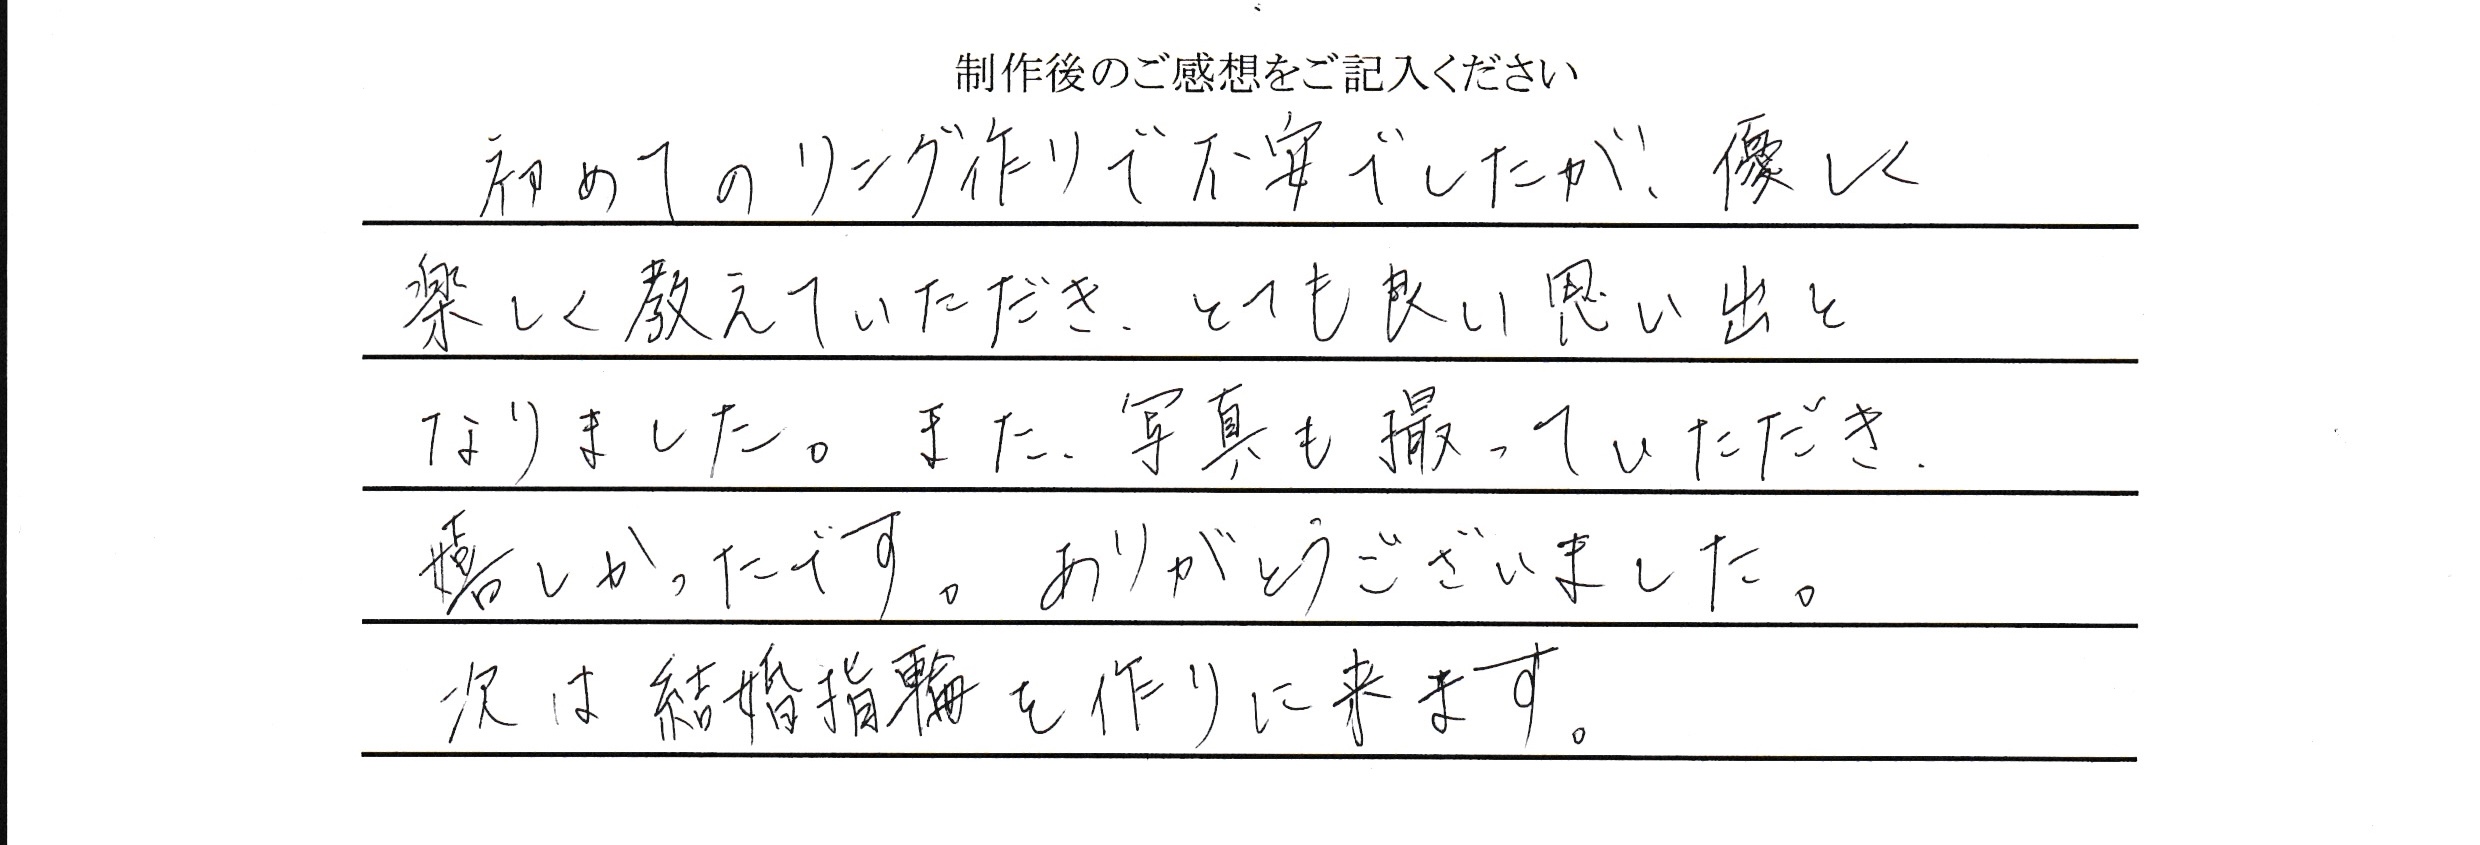 制作後のご感想をご記入ください
初めてのリング作りで不安でしたが、優しく
楽しく教えていただき、とても良い思い出と
なりました。また、写真も撮っていただき、
嬉しかったです。ありがとうございました。
次は結婚指輪を作りに来ます。